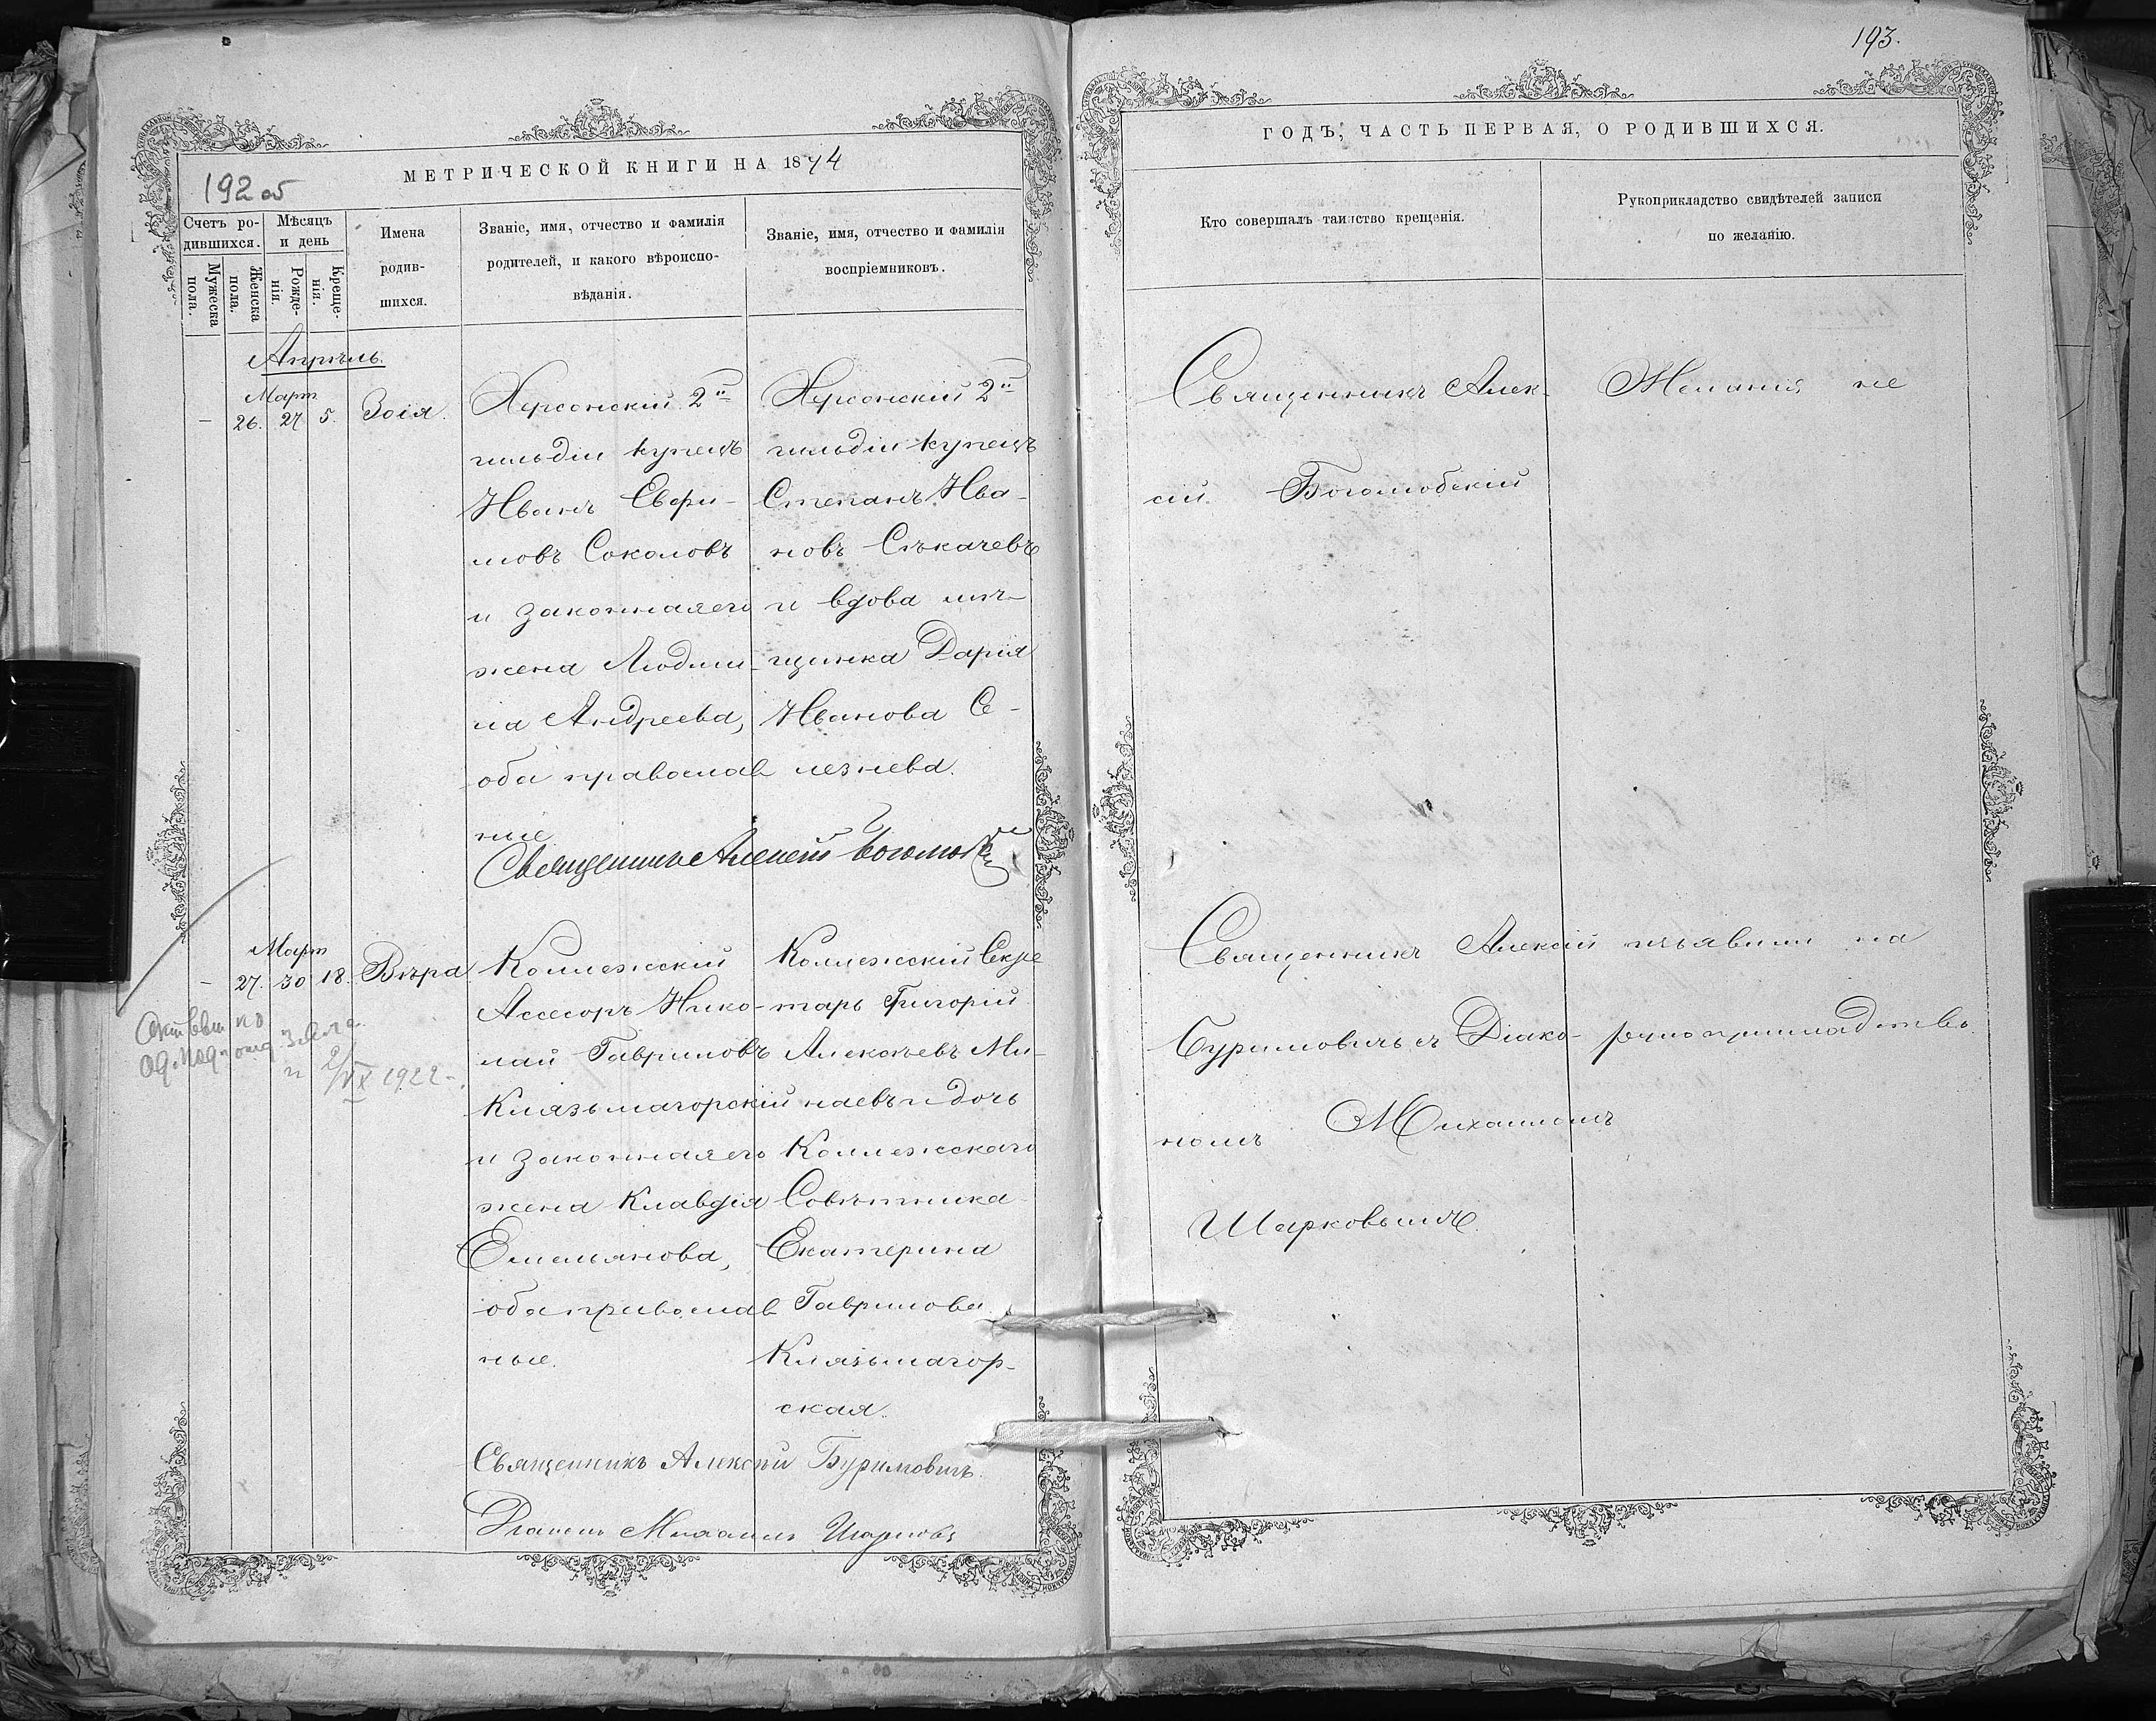 193.
МЕТРИЧЕСКОЙ КНИГИ НА 1874
192 об
Счетъ ро-
дившихся.
Мужеска
пола.
Женска
пола.
Мѣсяцъ
и день
Рожде-
нія.
Креще-
нія.
Имена
родив-
шихся.
Званіе, имя, отчество и фамилія
родителей, и какого вѣроиспо-
вѣданія.
Званіе, имя, отчество и фамилія
воспріемниковъ.
Апрѣль.
Март
- 26. 27 5. Зоія.
Херсонскій 2й
гильдіи купецъ
Иванъ Евфи-
мовъ Соколовъ
и законная его
жена Людми-
ла Андреева,
оба православ
ные
Херсонскій 2й
гильдіи купецъ
Степанъ Ива-
новъ Скъкачевъ
и вдова мѣ-
щанка Дарія
Иванова Се-
лезнева.
Священникъ Алексій
Март
- 27. 30 18. Вѣра
Коллежскій
Ассесоръ Нико-
лай Гавриловъ
Князьмагорскій
и законная его
жена Клавдія
Емельянова,
оба православ
ные.
Коллежскій Секре
тарь Григорій
Алексѣевъ Ми-
наевъ и дочь
Коллежскаго
Совѣтника
Екатерина
Гаврилова
Князьмагор-
ская.
1922
Священникъ Алексѣй Буримовичъ.
Діаконъ Михаилъ Шарковъ
ГОДЪ, ЧАСТЬ ПЕРВАЯ, О РОДИВШИХСЯ.
Кто совершалъ таинство крещенія.
Рукоприкладство свидѣтелей записи
по желанію.
Священникъ Алек-
сій Боголюбскій
Желанія не
Священникъ Алексій
Буримовичъ съ Діако-
номъ Михаиломъ
Шарковымъ
изъявили на
рукоприкладство